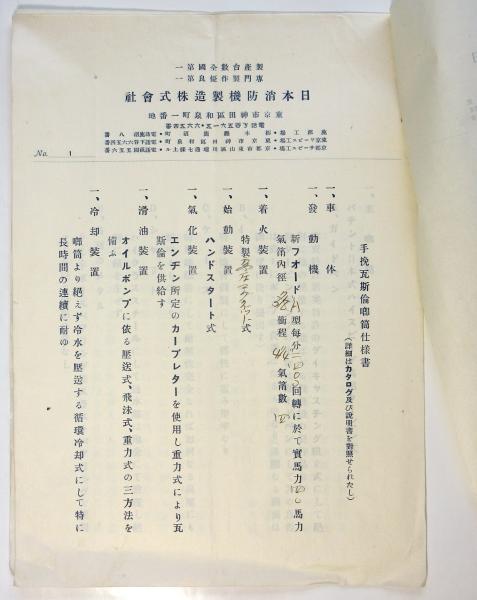 製産台数全國第一
専門製作優良第一
日本消防機製造株式會社
東京市神田區和泉町一番地
No. 1
手挽瓦斯倫喞筒仕様書
(詳細はカタログ及び説明書を對照せられたし)
一、車體
一、發動機
新フオードA型毎分二四〇〇回轉に於て實馬力四〇馬力
氣筩内徑 衝程 氣筩數 四
一、着火裝置
特製 式
一、始動裝置
ハンドスタート式
一、氣化裝置
エンヂン所定のカーブレターを使用し重力式により瓦
斯倫を供給す
一、滑油裝置
オイルポンプに依る壓送式、飛沫式、重力式の三方法を
備ふ
一、冷却裝置
喞筒より絶えず冷水を壓送する循環冷却式にして特に
長時間の連續に耐ゆ